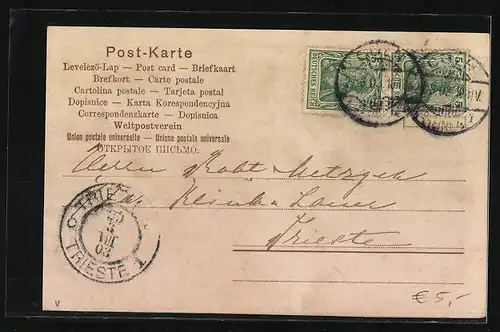 Post-Karte
Levelező-Lap — Post card — Briefkaart
Brefkort — Carte postale
Cartolina postale — Tarjeta postal
Dopisnice — Karta Korespondencyjna
Correspondenzkarte — Dopisnica
Weltpostverein
Union postale universelle — Unione postale universale
ОТКРЫТОЕ ПИСЬМО.
Herrn Robt Metzger
Trieste
TRIESTE 1
€ 5,-
v